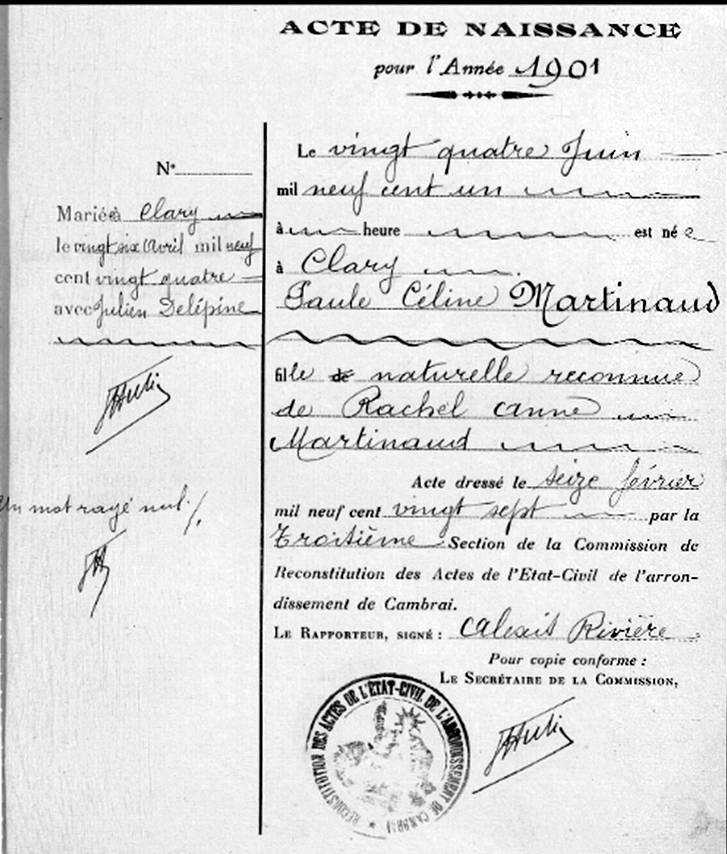 ACTE DE NAISSANCE
pour l'Année 1901
N°
Mariée à Clary
le vingt six Avril mil neuf
cent vingt quatre
avec Julien Delépine
Un mot rayé nul
Le vingt quatre Juin
mil neuf cent un
à heure est né e
à Clary
Paule Céline Martinaud
fille de naturelle reconnue
de Rachel Anne
Martinaud
Acte dressé le seize février
mil neuf cent vingt sept par la
Troisième Section de la Commission de
Reconstitution des Actes de l'Etat-Civil de l'arron-
dissement de Cambrai.
LE RAPPORTEUR, SIGNÉ : Alexis Rivière
Pour copie conforme :
LE SECRÉTAIRE DE LA COMMISSION,
RECONSTITUTION DES ACTES DE L'ÉTAT-CIVIL DE L'ARRONDISSEMENT DE CAMBRAI